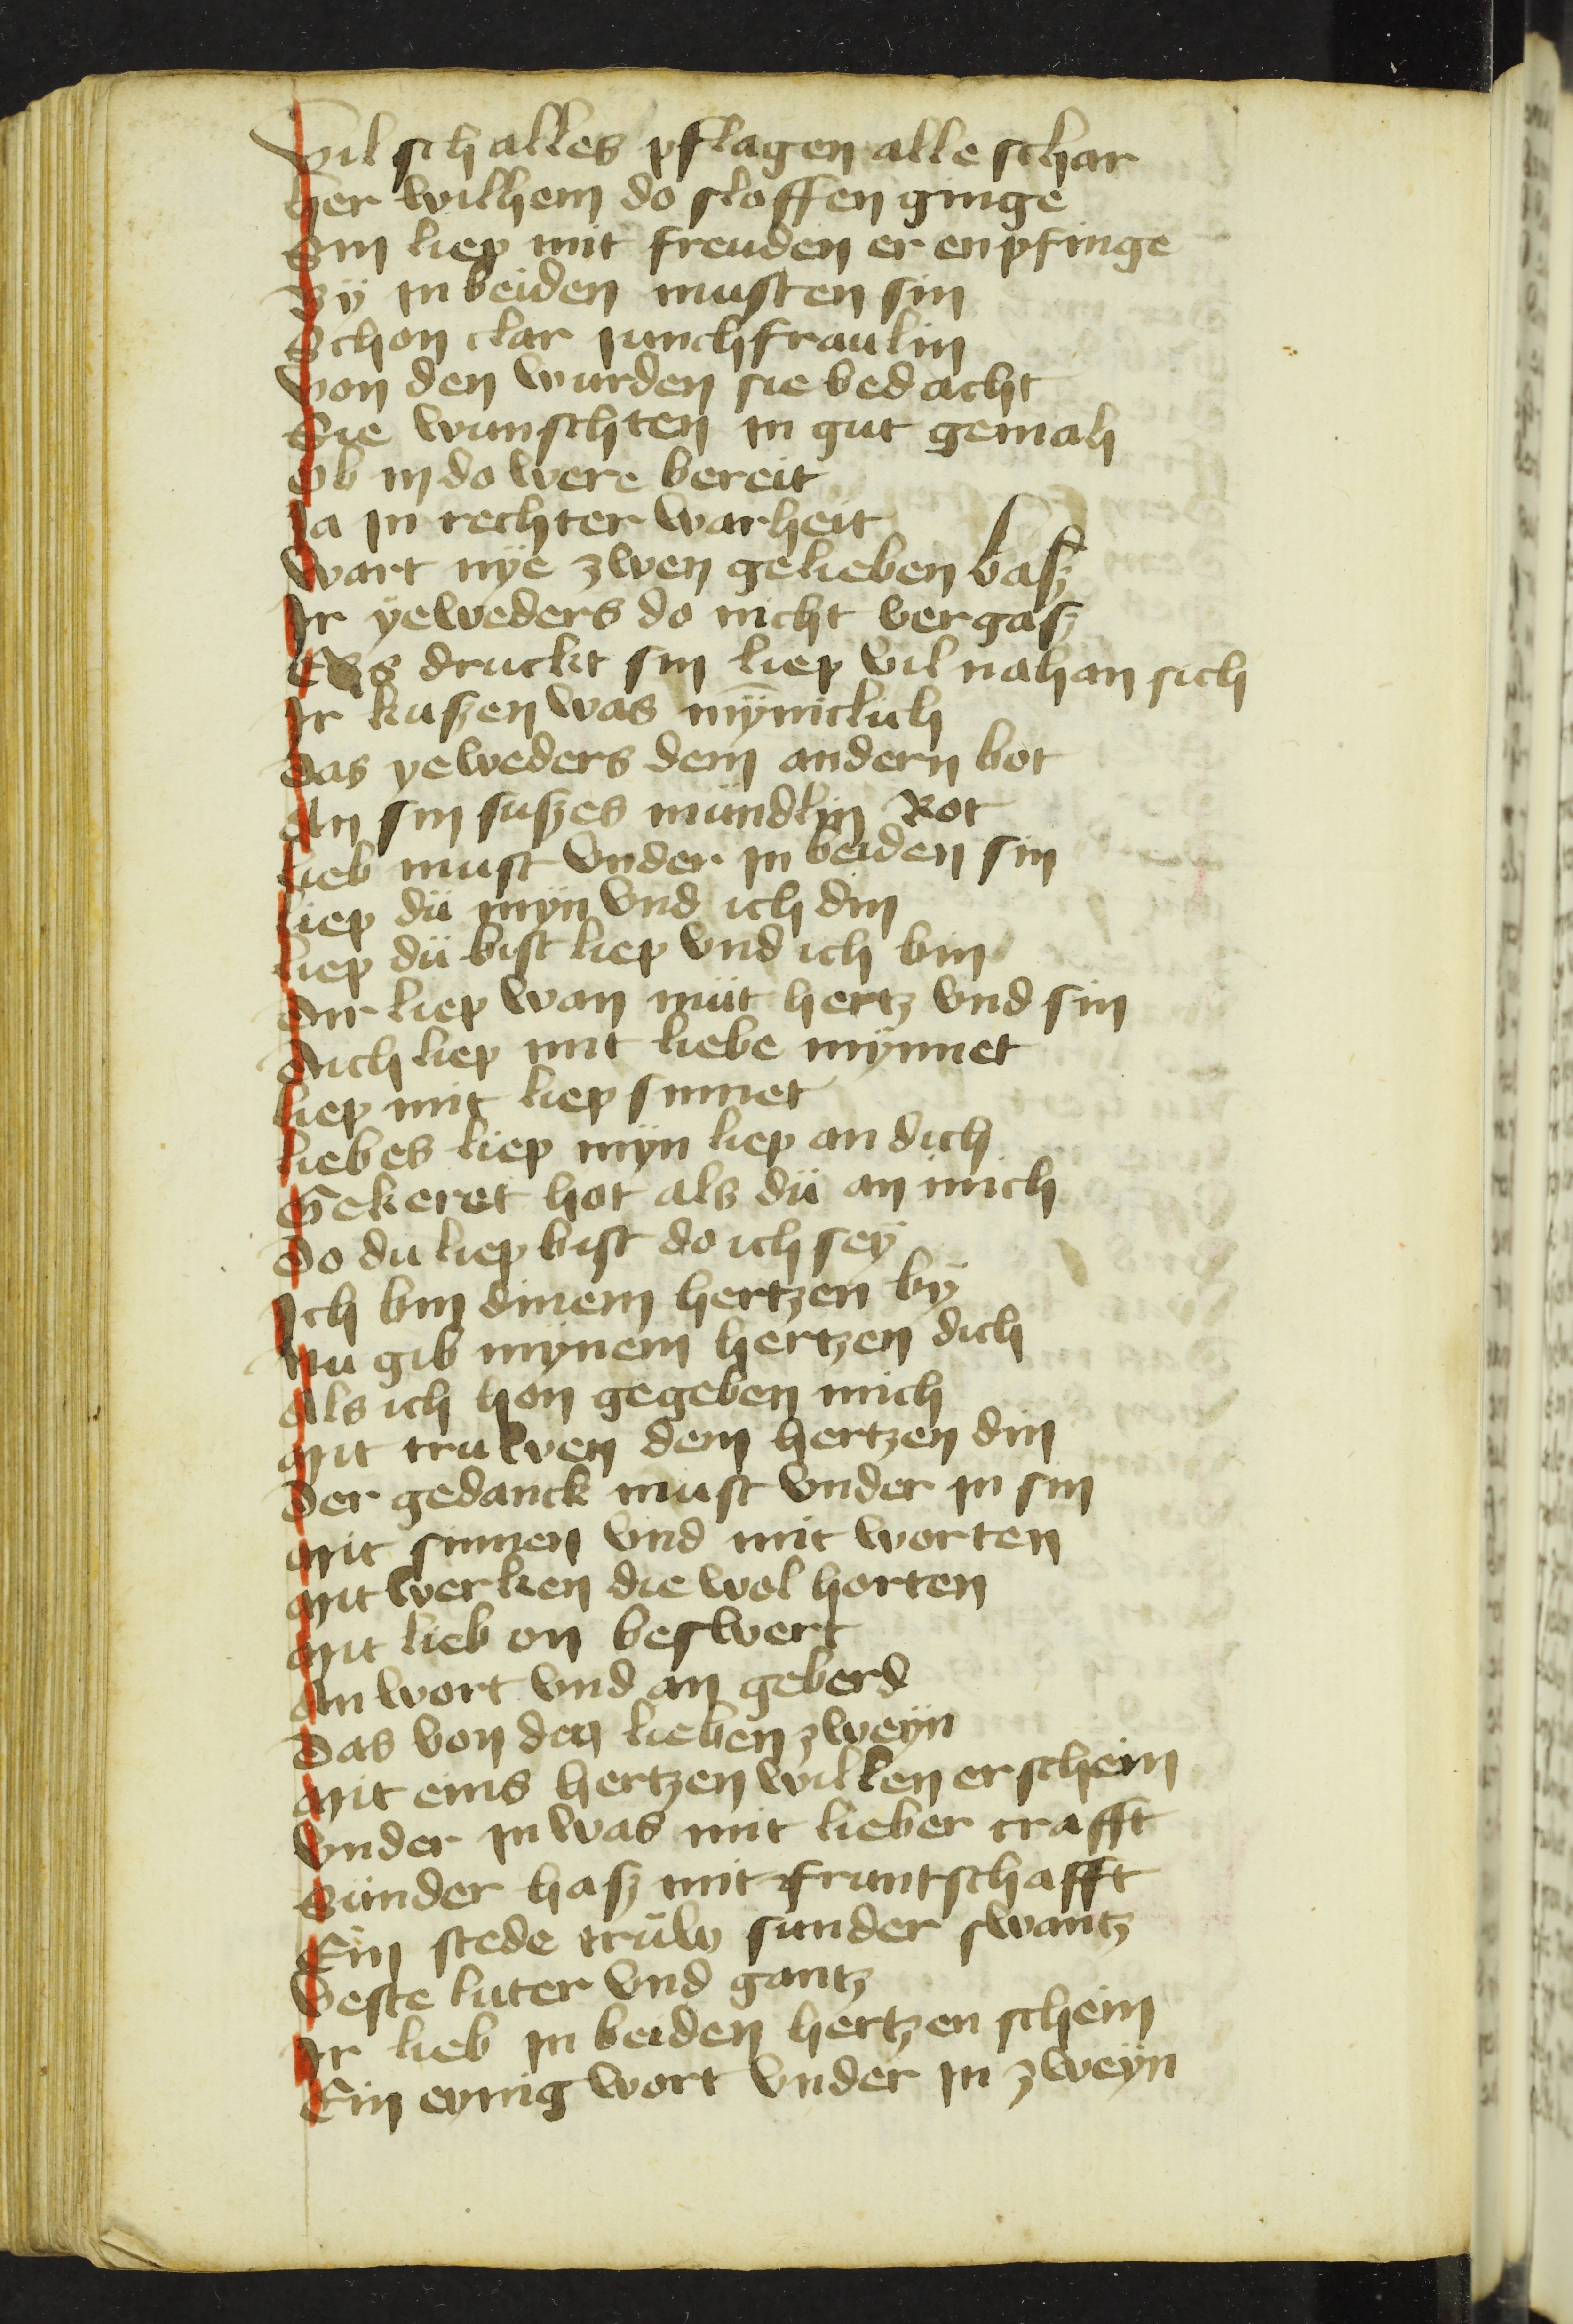 Vil schalles pflagen alle schar
Her wilhem do sloffen ginge
Sin liep mit freuden er enpfinge
Bÿ in beiden musten sin
Schon clar junchfraulin
Von den wurden sie bedacht
Sie wunschten in gut gemah
Ob in do were bereit
Ja in rechter warheit
Wart nÿe zwen gelieben basz
Ir ÿeweders do nicht vergasz
druckt sin liep vil nah an sich
Ir kuszen was mÿniclich
Das yeweders dem andern bot
An sin suszes mündlin Rot
Lieb must vnder in beiden sin
Liep dü mÿn vnd ich din
Liep dü bist liep vnd ich bin
Dir liep wan müt hertz vnd sin
Dich liep mit liebe mÿnnet
Liep mit liep sinnet
Liebes liep mÿn liep an dich
Gekeret hot als dü an mich
Do du liep bist do ich seÿ
Ich bin dinem hertzen bÿ
Nu gib mÿnem hertzen dich
Als ich hon gegeben mich
Mit truwen dem hertzen din
Der gedanck must vnder in sin
Mit sinnen vnd mit worten
Mit werken die wol horten
Mit lieb on beswert
An wort vnd an geberd
Das von den lieben zweÿn
Mit eins hertzen willen erschein
Vnder in was mit lieber crafft
Sünder hasz mit fruntschafft
Ein stede trüw sunder swantz
Veste luter vnd gantz
Ir lieb in beiden hertzen schein
Ein eynig wort vnder in zweÿn